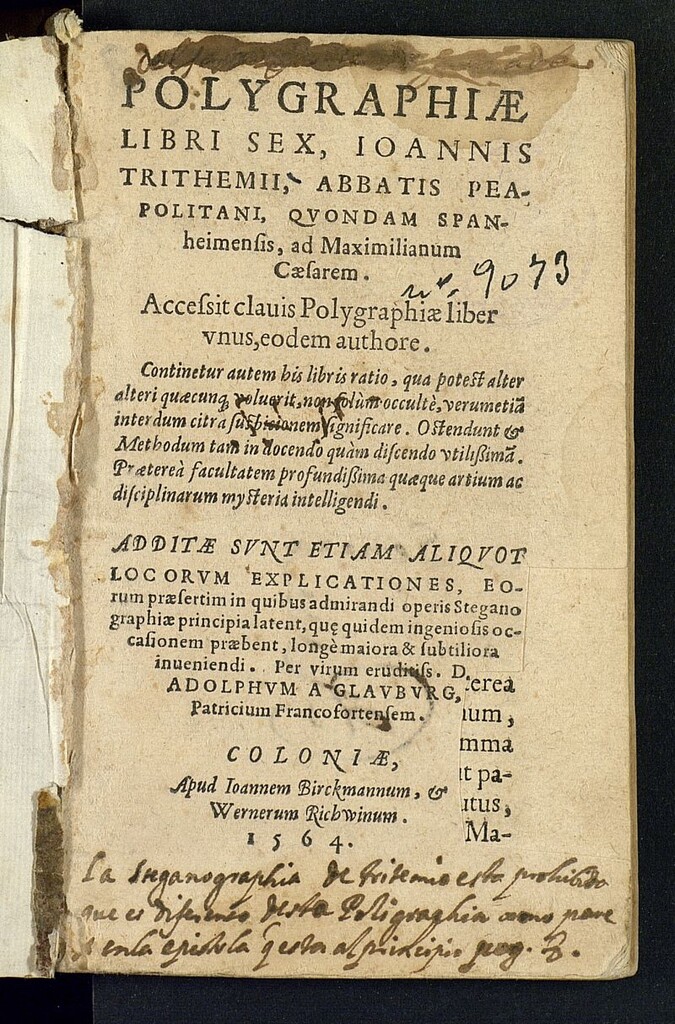 POLYGRAPHIÆ
LIBRI SEX, IOANNIS
TRITHEMII, ABBATIS PEA-
POLITANI, QVONDAM SPAN-
heimenſis, ad Maximilianum
Cæſarem.
nº. 9073
Acceſsit clauis Polygraphiæ liber
vnus, eodem authore.
Continetur autem his libris ratio, qua poteſt alter
alteri quæcunq; voluerit, non ſolùm occultè, verumetiã
interdum citra ſuſpicionem ſignificare. Oſtendunt &
Methodum tam in docendo quàm diſcendo vtilißimã.
Præterea facultatem profundißima quæque artium ac
diſciplinarum myſteria intelligendi.
ADDITÆ SVNT ETIAM ALIQVOT
LOCORVM EXPLICATIONES, EO-
rum præſertim in quibus admirandi operis Stegano
graphiæ principia latent, quę quidem ingenioſis oc-
caſionem præbent, longè maiora & ſubtiliora
inueniendi. Per virum eruditiſs. D.
ADOLPHVM A GLAVBVRG,
Patricium Francofortenſem.
terea
ium,
mma
it pa-
itus,
Ma-
COLONIÆ,
Apud Ioannem Birckmannum, &
Wernerum Richwinum.
1564.
La Steganographia de tritemio esta prohibida
que es diferente desta Poligraphia como pare
en la epistola q esta al principio pag. 3.